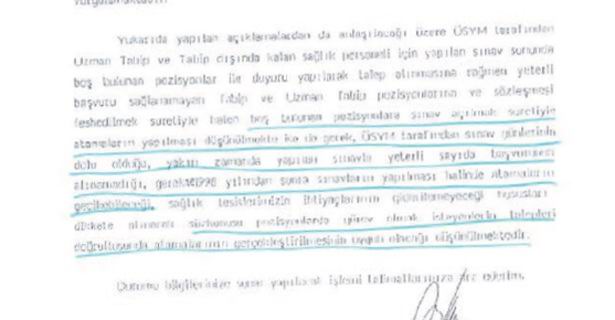 Yukarıda yapılan açıklamalardan da anlaşılacağı üzere ÖSYM tarafından
Uzman Tabip ve Tabip dışında kalan sağlık personeli için yapılan sınav sonunda
boş bulunan pozisyonlar ile duyuru yapılarak talep alınmasına rağmen yeterli
başvuru sağlanamayan Tabip ve Uzman Tabip pozisyonlarına ve sözleşmesi
feshedilmek suretiyle halen boş bulunan pozisyonlara sınav açılmak suretiyle
atamaların yapılması düşünülmekte ise de gerek, ÖSYM tarafından sınav günlerinin
dolu olduğu, yakın zamanda yapılan sınavla yeterli sayıda başvurunun
alınamadığı, gerekse yılından sonra sınavların yapılması halinde atamaların
gecikebileceği, sağlık tesislerinizin ihtiyaçlarının giderilemeyeceği hususları
dikkate alınarak sözkonusu pozisyonlarda görev almak isteyenlerin talepleri
doğrultusunda atamalarının gerçekleştirilmesinin uygun olacağı düşünülmektedir.
Durumu bilgilerinize sunar yapılacak işlemi talimatlarınıza arz ederim.